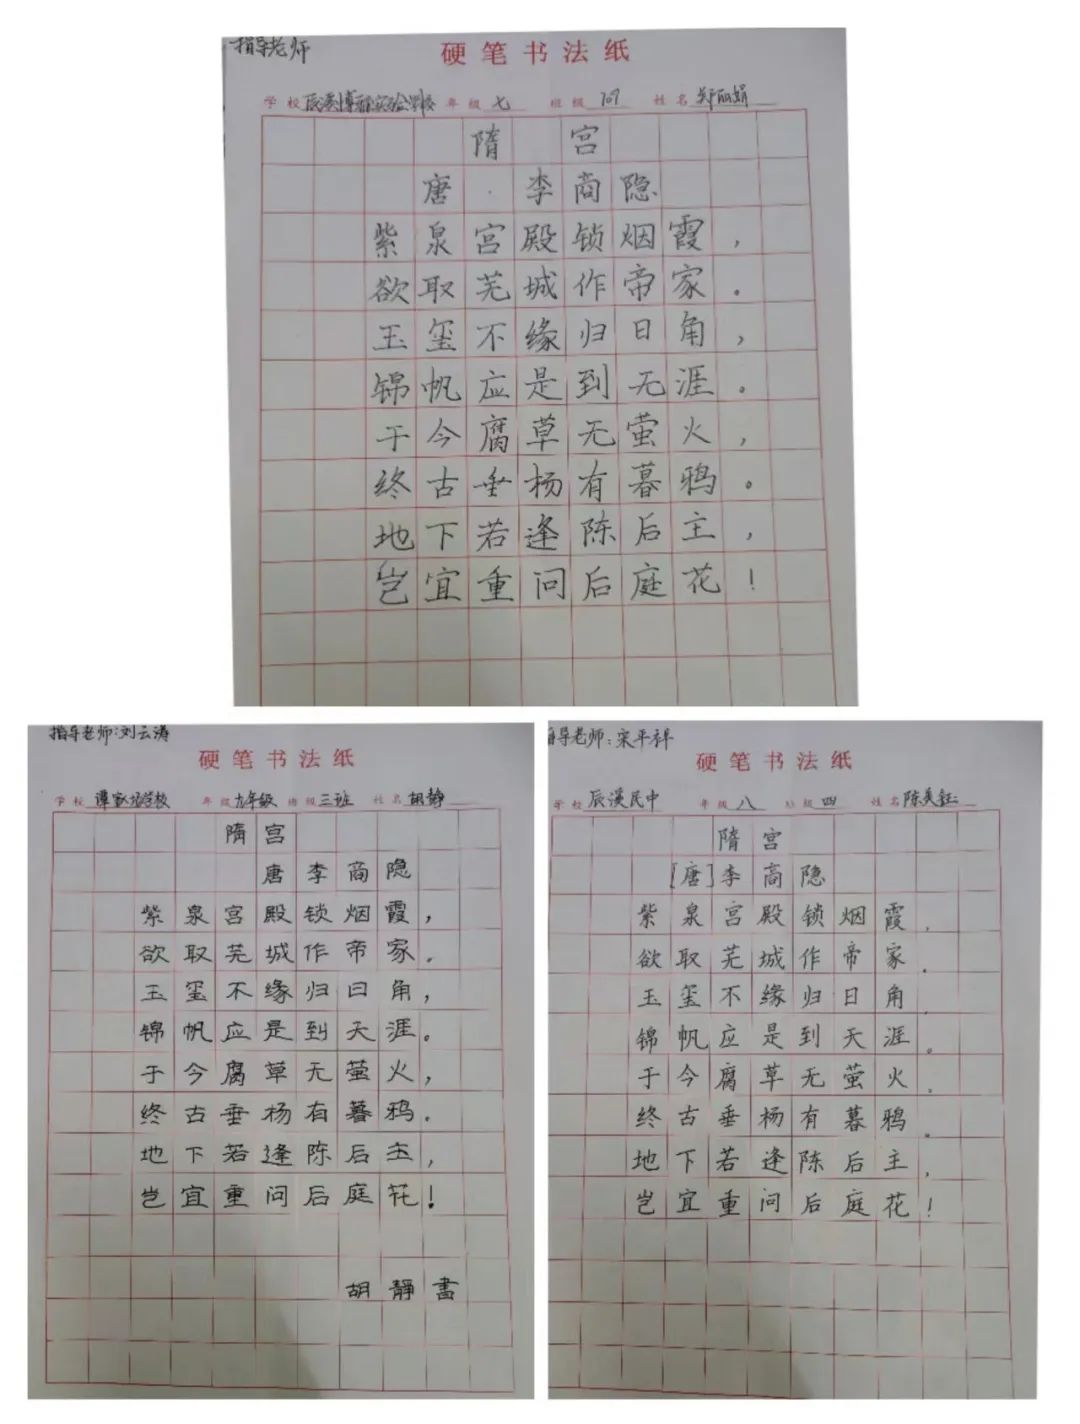 指导老师
硬笔书法纸
学校 辰溪博雅实验学校 年级 七 班级 107 姓名 郑丽娟
隋宫
唐·李商隐
紫泉宫殿锁烟霞，
欲取芜城作帝家。
玉玺不缘归日角，
锦帆应是到无涯。
于今腐草无萤火，
终古垂杨有暮鸦。
地下若逢陈后主，
岂宜重问后庭花！
指导老师：刘云涛
硬笔书法纸
学校 谭家场学校 年级 九年级 班级 三班 姓名 胡静
隋宫
唐李商隐
紫泉宫殿锁烟霞，
欲取芜城作帝家。
玉玺不缘归日角，
锦帆应是到天涯。
于今腐草无萤火，
终古垂杨有暮鸦。
地下若逢陈后主，
岂宜重问后庭花！
胡静書
指导老师：宋平
硬笔书法纸
学校 辰溪民中 年级 八 班级 四 姓名 陈美钰
隋宫
[唐]李商隐
紫泉宫殿锁烟霞，
欲取芜城作帝家。
玉玺不缘归日角
锦帆应是到天涯。
于今腐草无萤火，
终古垂杨有暮鸦。
地下若逢陈后主，
岂宜重问后庭花！